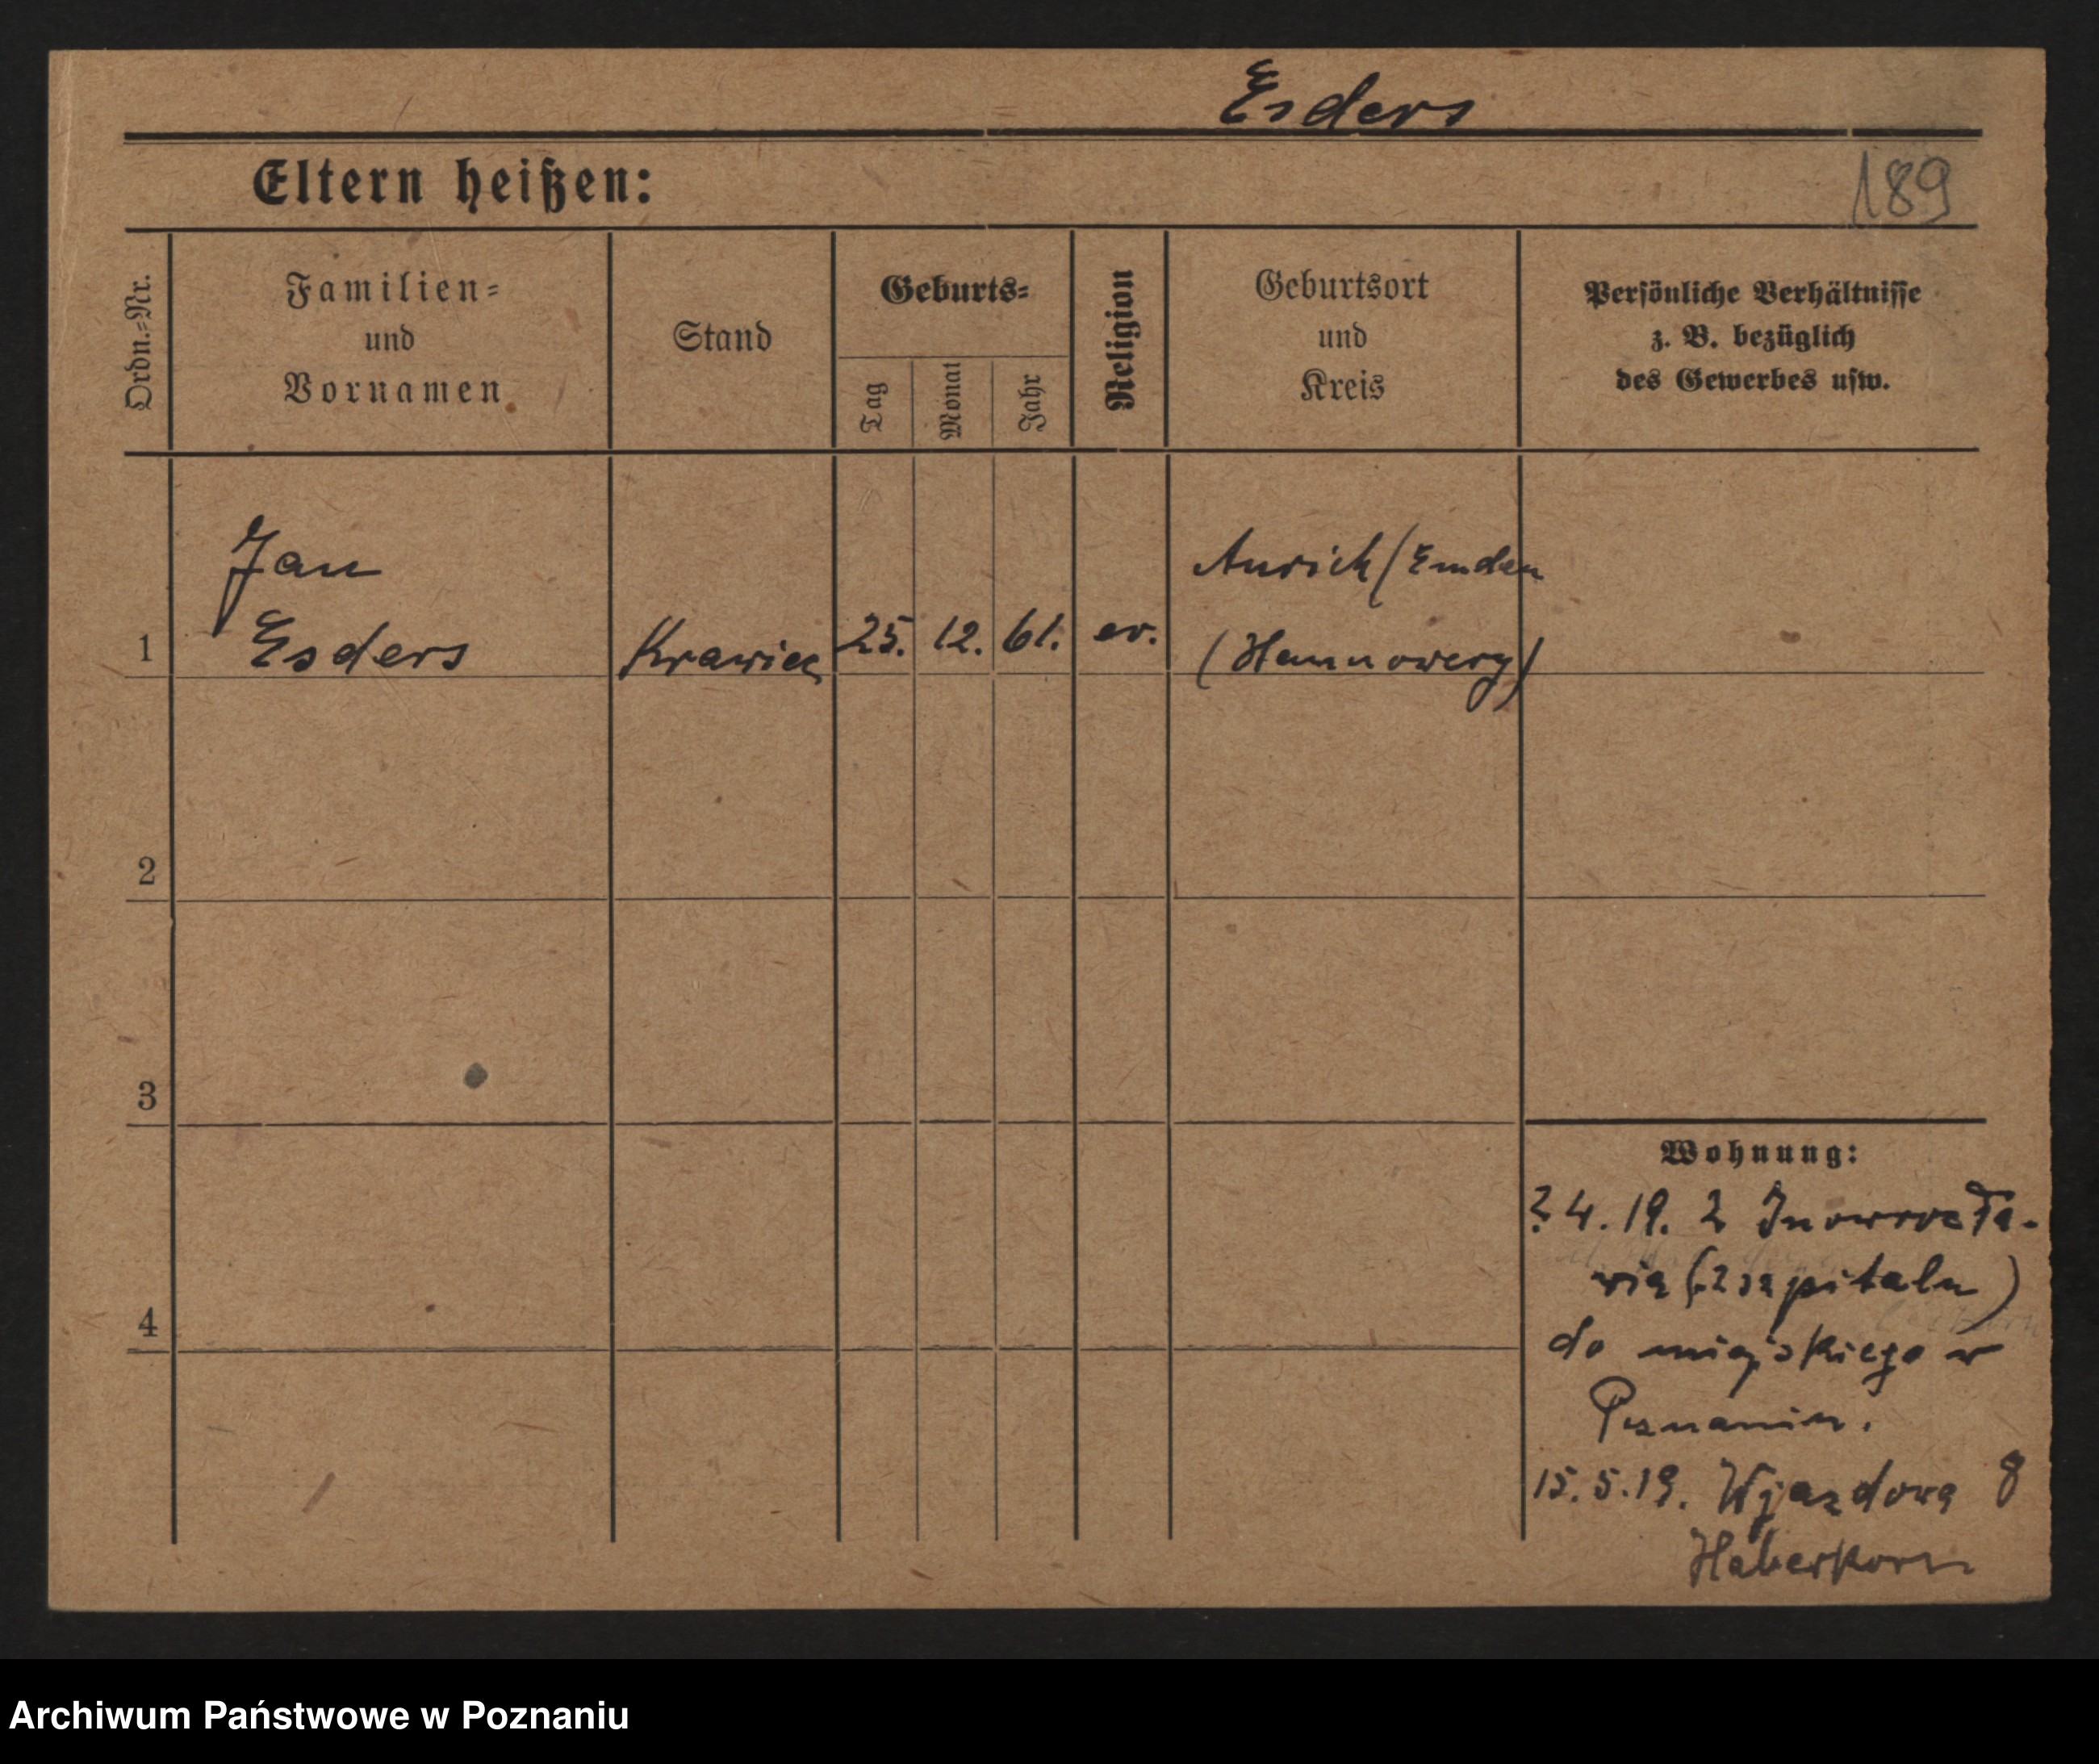 Esders
Eltern heißen:
189
Ordn.-Nr.
Familien-
und
Vornamen
Stand
Geburts-
Tag
Monat
Jahr
Religion
Geburtsort
und
Kreis
Persönliche Verhältnisse
z. B. bezüglich
des Gewerbes usw.
1
Jan
Esders
Krawiec
25.
12.
61.
ev.
Aurich/Emden
(Hannowery)
2
3
4
Wohnung:
? 4. 19. z Inowrocła-
wia (z szpitalu)
do miejskiego w
Poznaniu.
15. 5. 19. Wjazdowa 8
Haberkorn
Archiwum Państwowe w Poznaniu